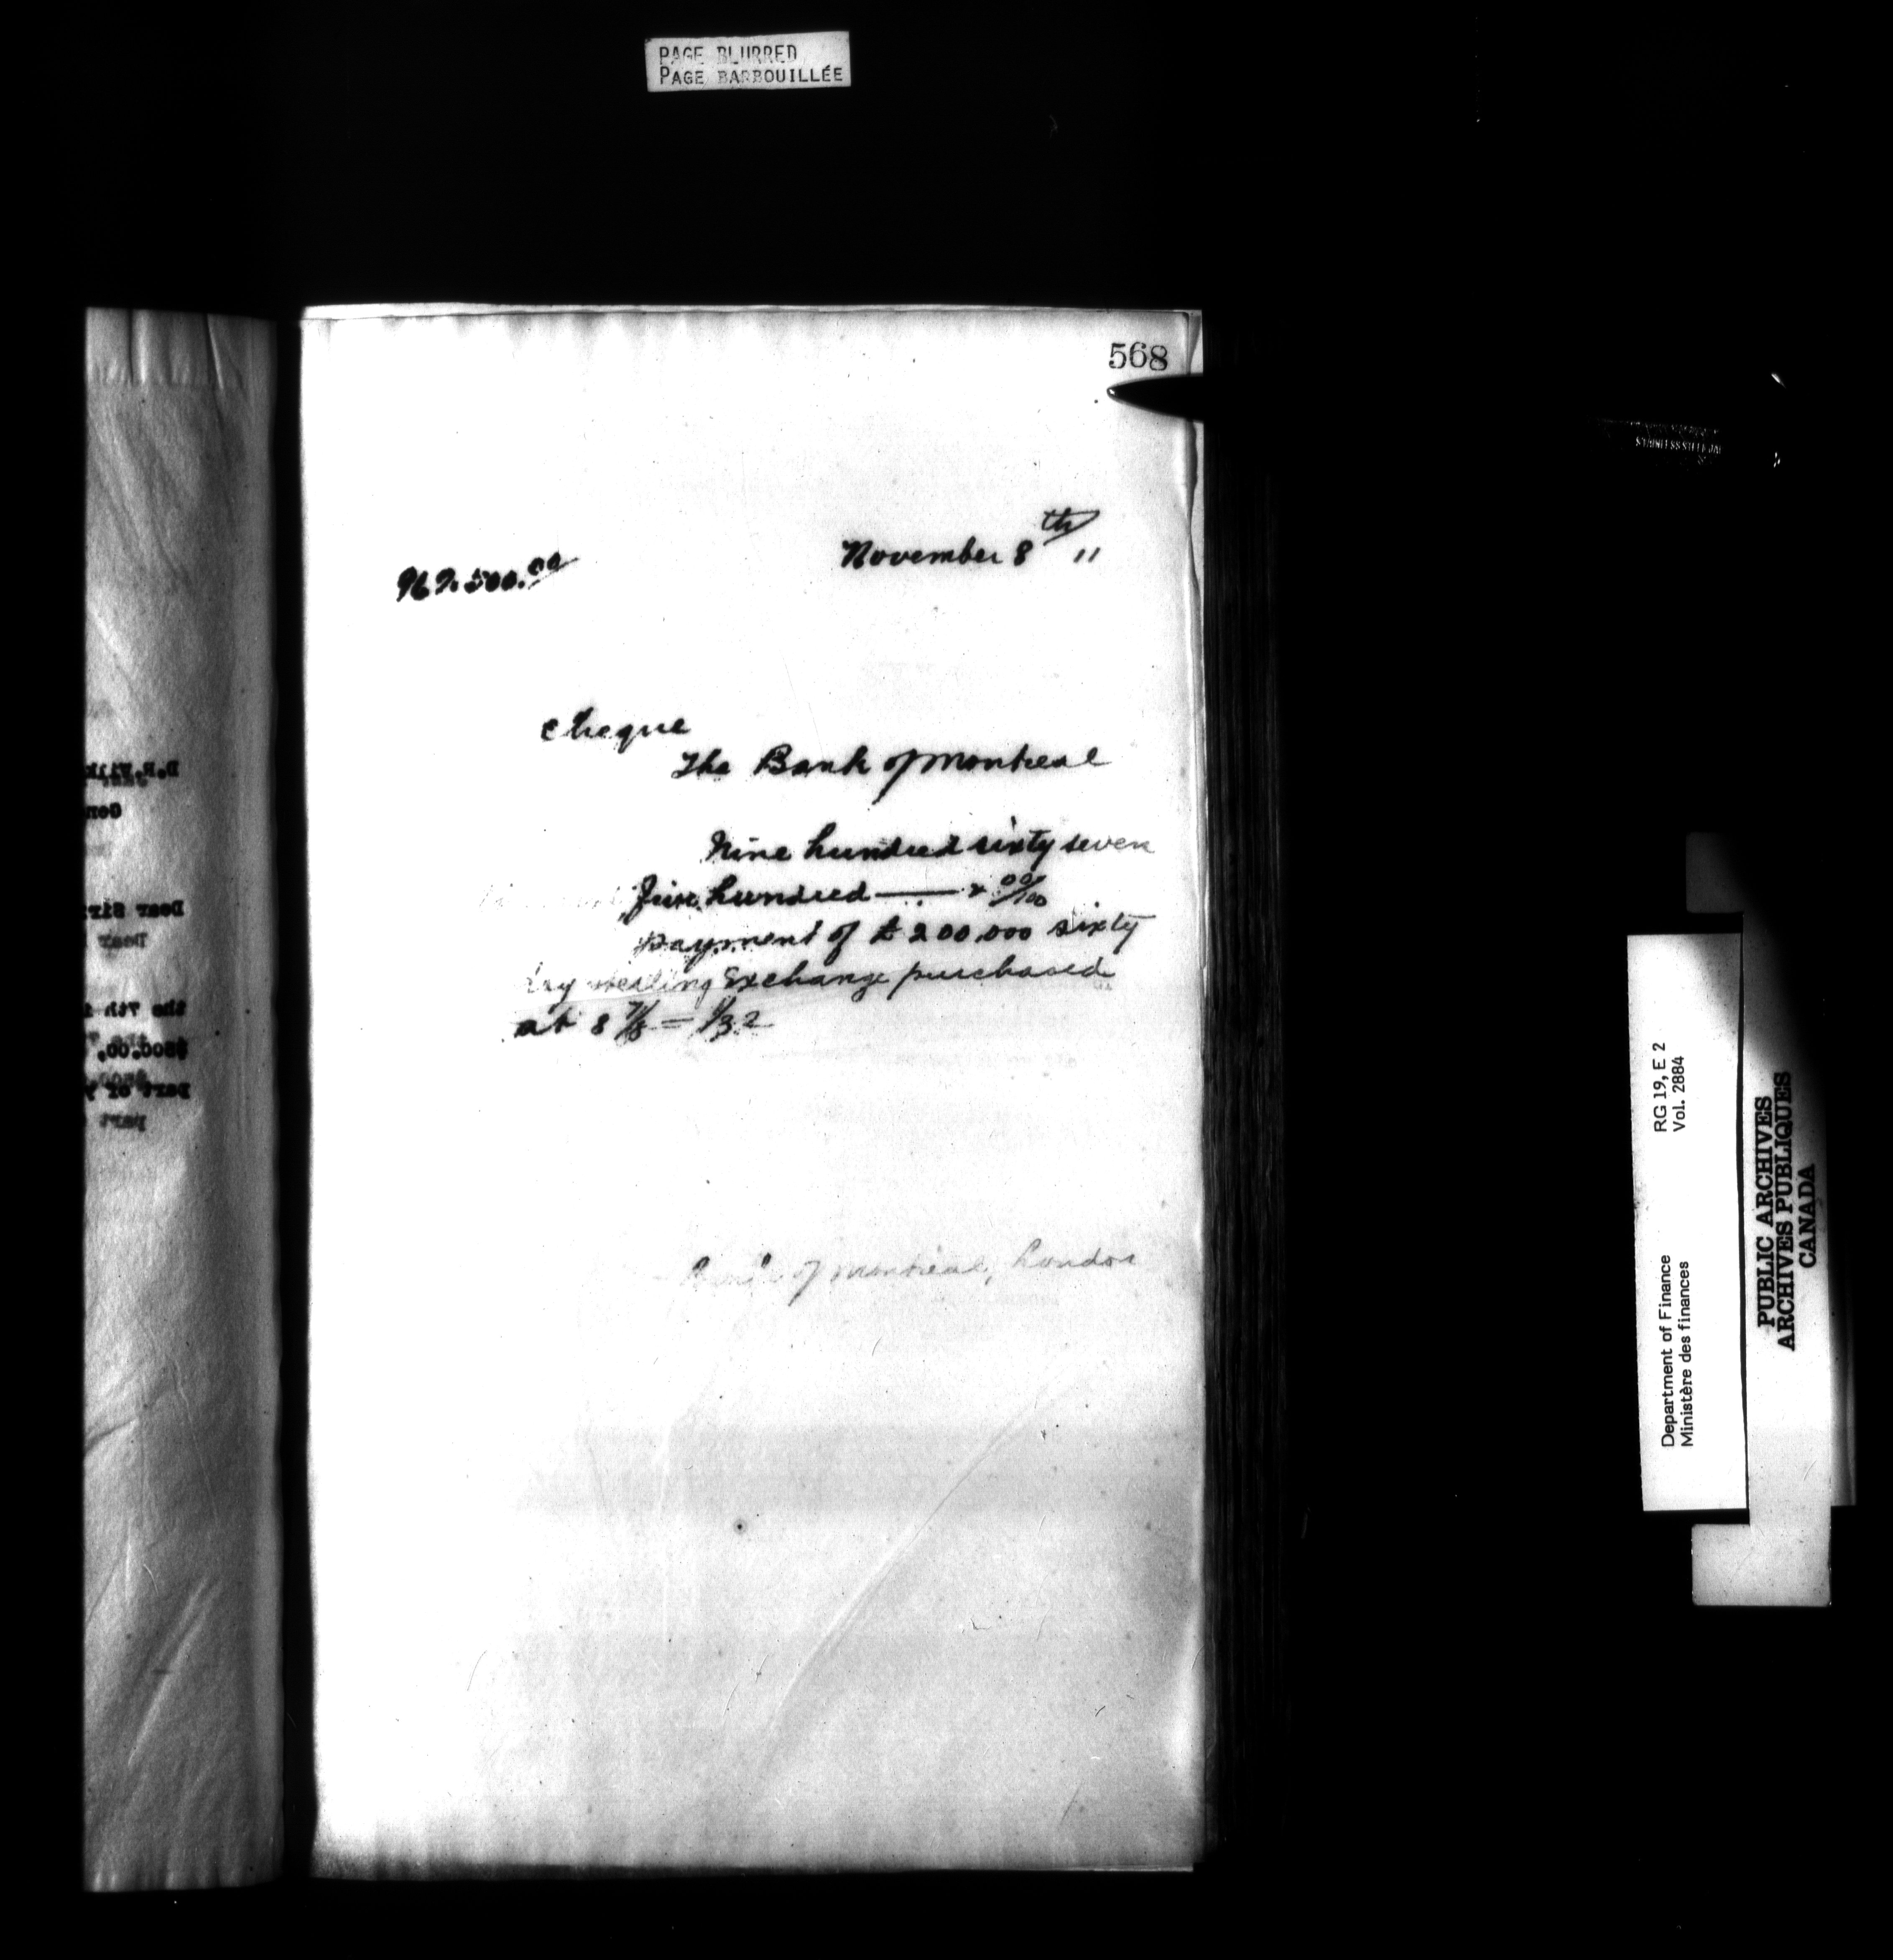 PAGE BLURRED
PAGE BARBOUILLÉE
568
November 8th/11
967.500.00
Cheque
The Bank of Montreal
Nine hundred sixty seven
five hundred —— & 00/100
payment of £200,000 sixty
day sterling Exchange purchased
at 8 7/8 = 1/32
Bank of Montreal, London
D.R.Wilk
Gen
Dear Sir
Dear
the 7th
$500.00,
part of
part
RG 19, E 2
Vol. 2884
Department of Finance
Ministère des finances
PUBLIC ARCHIVES
ARCHIVES PUBLIQUES
CANADA